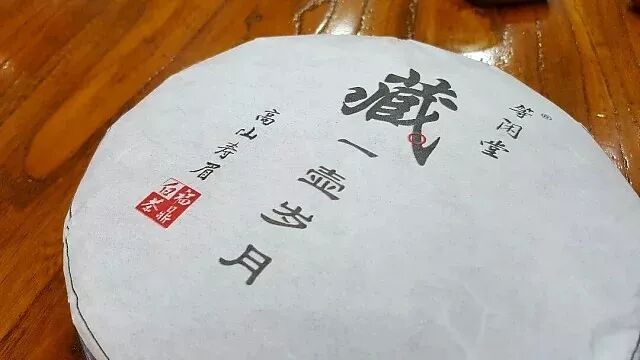 等闲堂®
藏一壶岁月
高山寿眉
福鼎
白茶